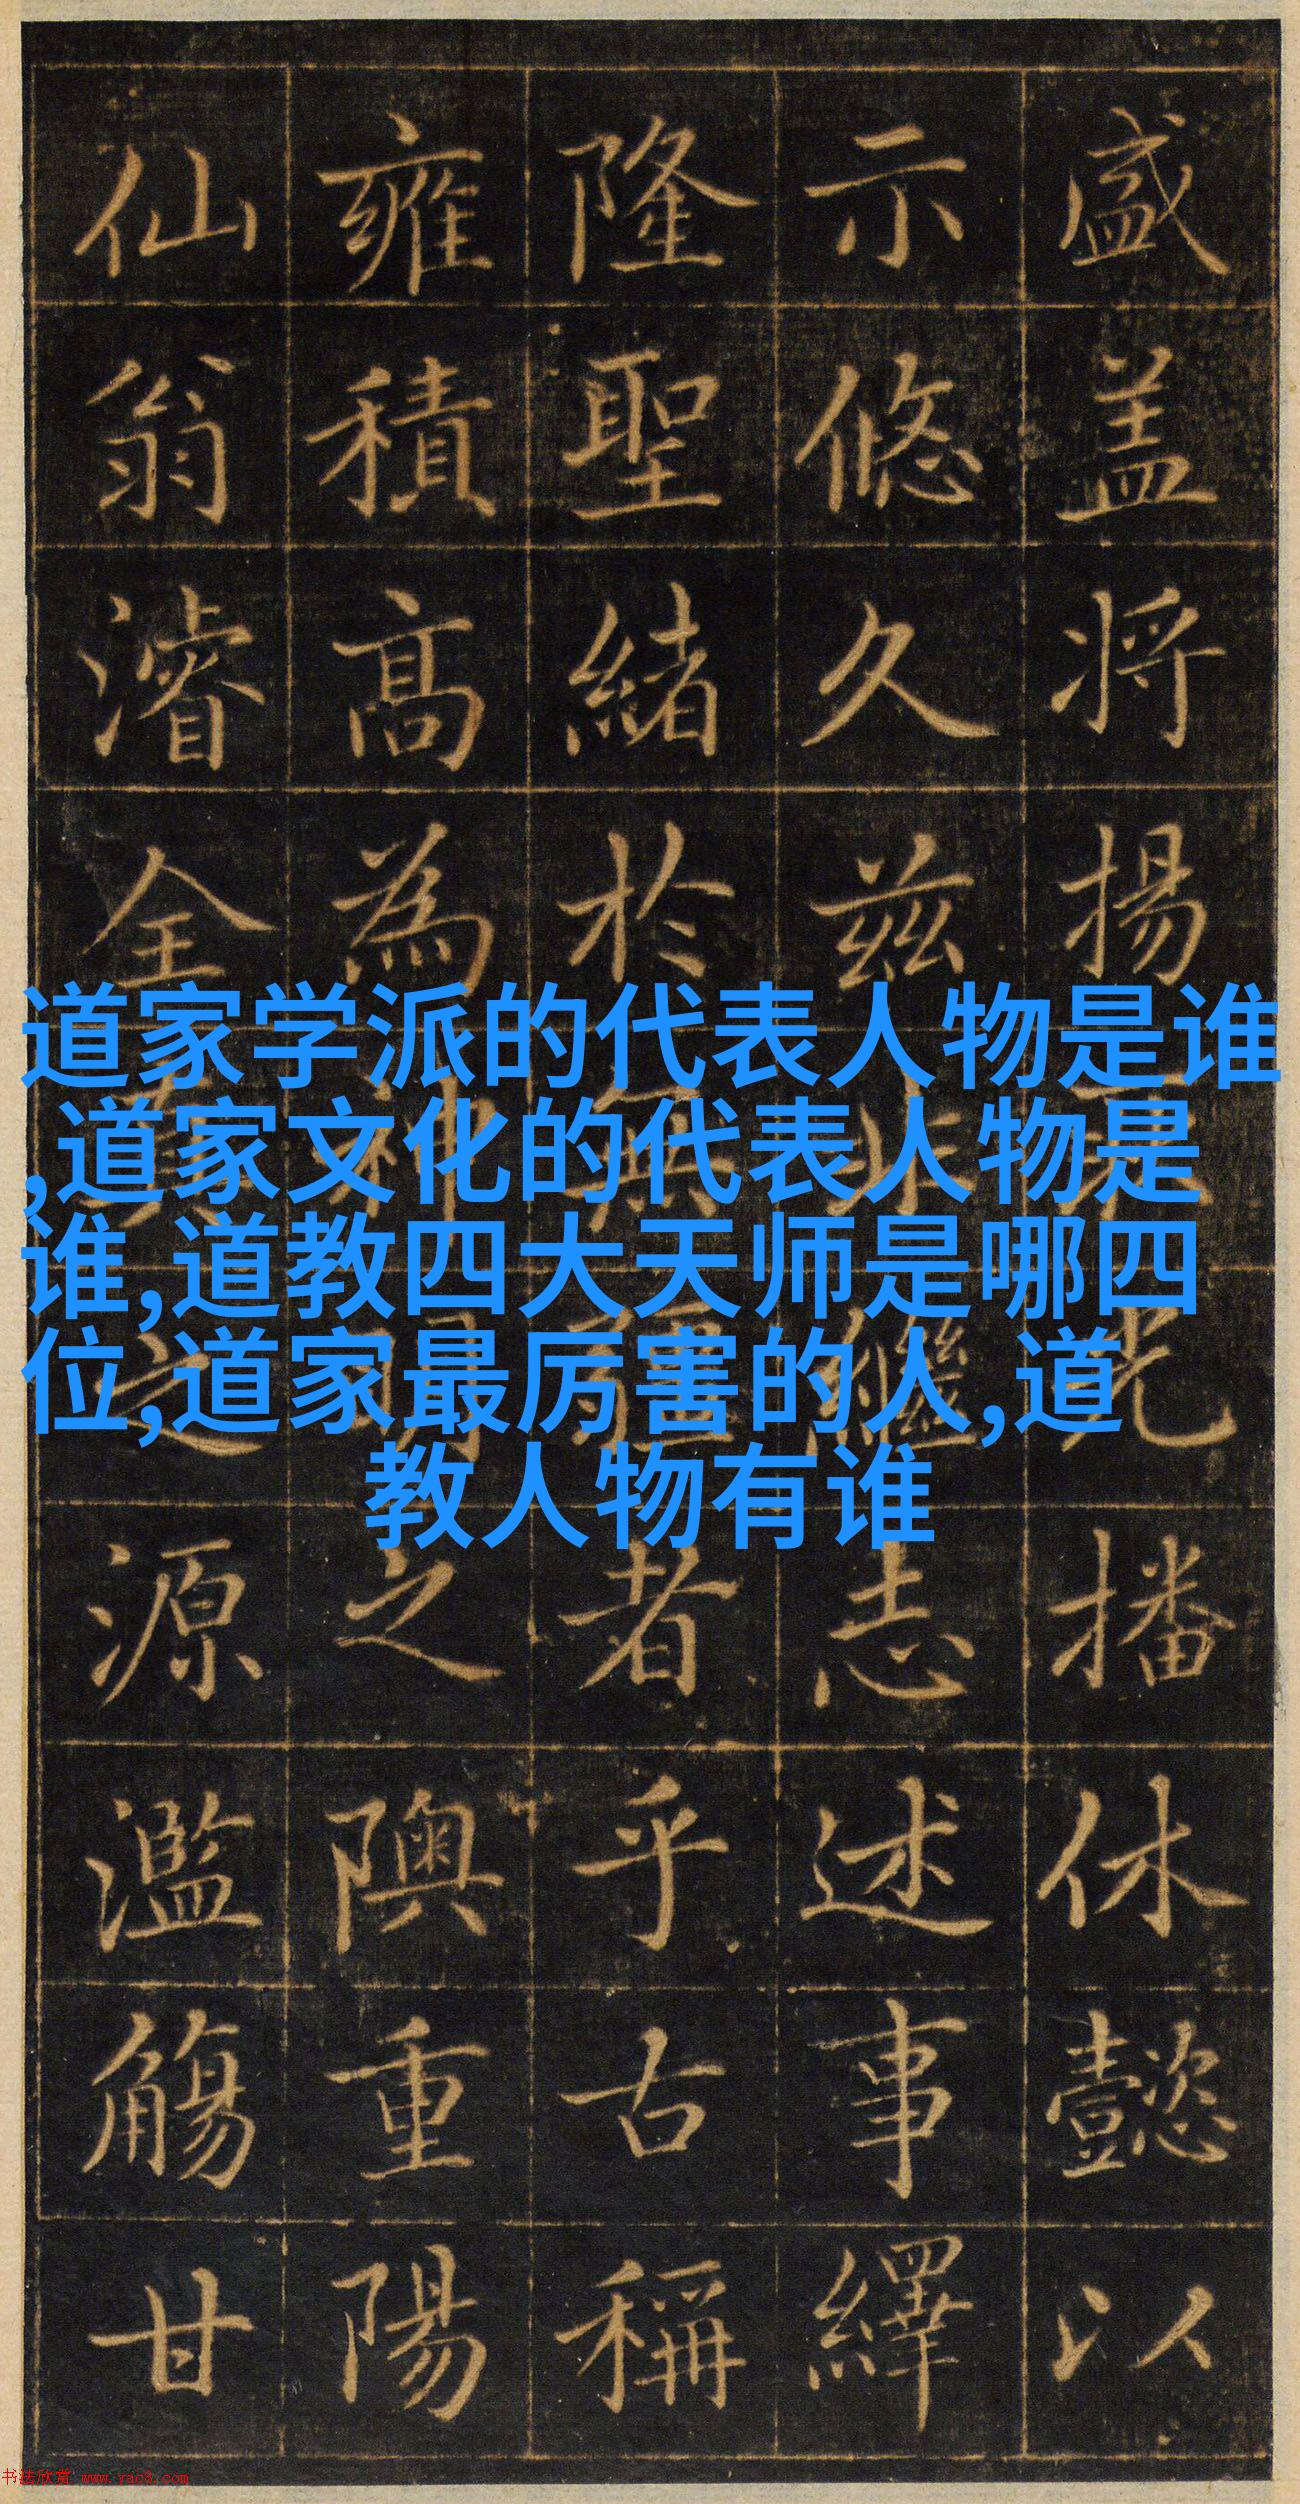 盛盖将揚光播休懿以
示悠久兹非繼志述事繹
隆聖緒於無疆者乎古稱
雍積高為神明之隩重陽
仙翁濬全真之源濫觴甘
道家学派的代表人物是谁
,道家文化的代表人物是
谁,道教四大天师是哪四
位,道家最厉害的人,道
教人物有谁
书法欣赏 www.yac8.com